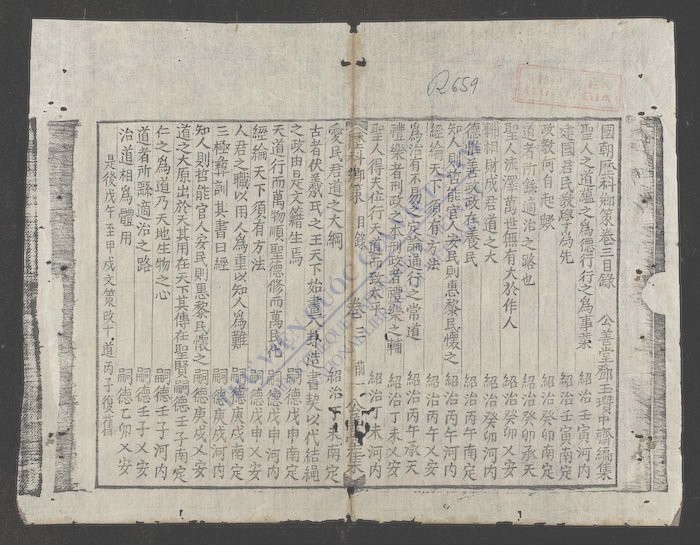 R659
國朝歷科鄉策卷三目錄
公善堂鄧玉瓚中齋編集
聖人之道蘊之為德行行之為事業 紹治壬寅河內
建國君民教學為先 紹治壬寅南定
政教何自起歟 紹治癸卯南定
道者所繇適治之路也 紹治癸卯承天
聖人流澤萬世無有大於作人 紹治癸卯乂安
輔相財成君道之大 紹治癸卯河內
德惟善政政在養民 紹治丙午南定
知人則哲能官人安民則惠黎民懷之 紹治丙午河內
經綸天下須有方法 紹治丙午乂安
為治有不易之定論通行之常道 紹治丙午承天
禮樂者刑政之本刑政者禮樂之輔 紹治丁未乂安
聖人得天位行天道而致太平 紹治丁未河內
歷科鄉策 目錄 卷三
愛民君道之大綱 紹治丁未南定
古者伏羲氏之王天下始畫八卦造書契以代結繩
之政由是文籍生焉 嗣德戊申南定
天道行而萬物順聖德修而萬民化 嗣德戊申河內
經綸天下須有方法 嗣德戊申乂安
人君之職以用人為重以知人為難 嗣德庚戌南定
三極彝訓其書曰經 嗣德庚戌河內
知人則哲能官人安民則惠黎民懷之 嗣德庚戌乂安
道之大原出於天其用在天下其傳在聖賢 嗣德壬子南定
仁之為道乃天地生物之心 嗣德壬子河內
道者所繇適治之路 嗣德壬子乂安
治道相為體用 嗣德乙卯乂安
是後戊午至甲戌文策改十道丙子復舊